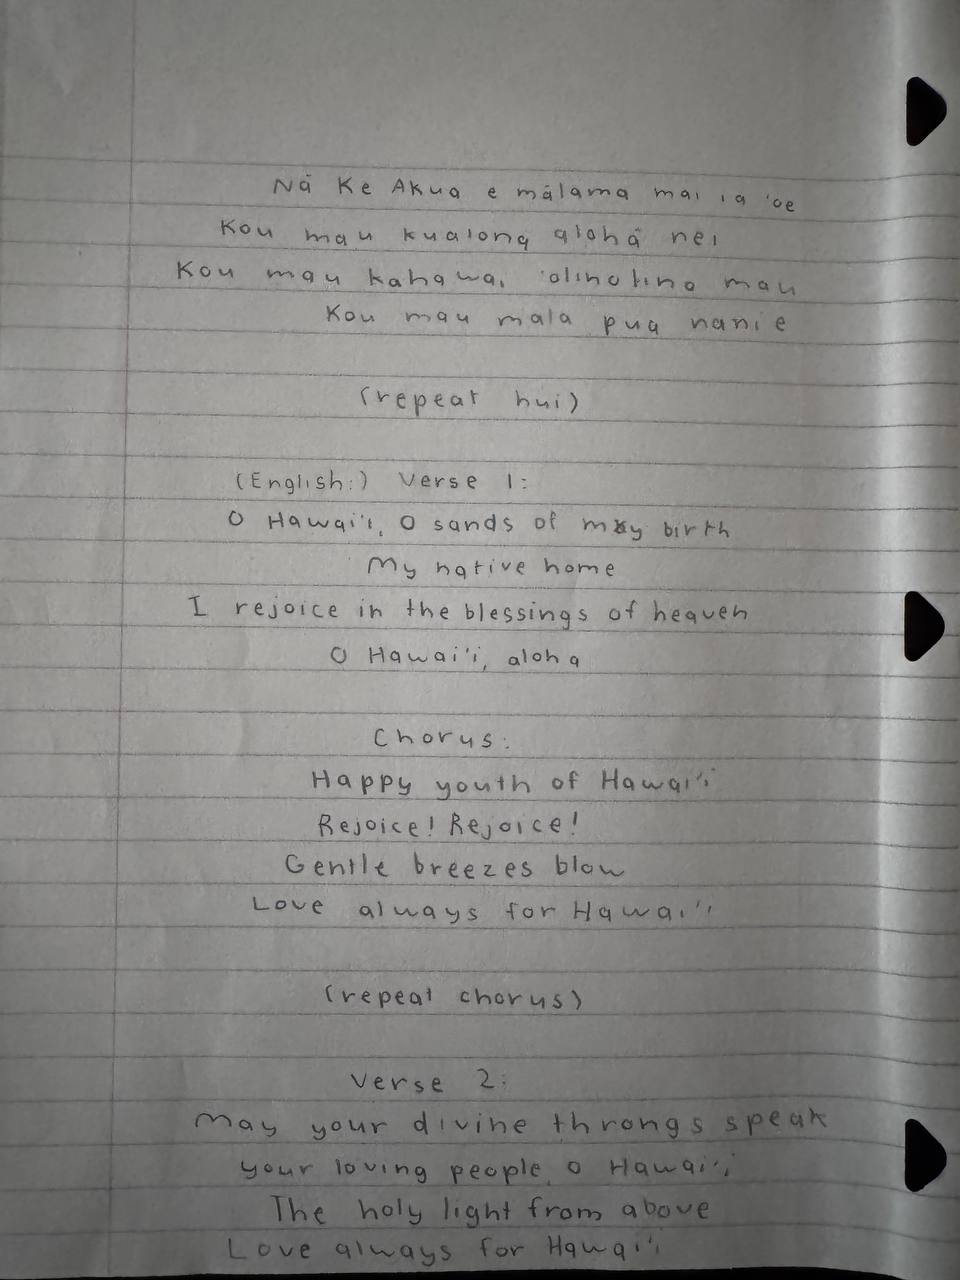 Nā Ke Akua e mālama mai ia 'oe
Kou mau kualong alohā nei
Kou mau kahawai 'olinolino mau
Kou mau mala pua nani e
(repeat hui)
(English:) Verse 1:
O Hawai'i, O sands of my birth
My native home
I rejoice in the blessings of heaven
O Hawai'i, aloha
Chorus:
Happy youth of Hawai'i
Rejoice! Rejoice!
Gentle breezes blow
Love always for Hawai'i
(repeat chorus)
Verse 2:
May your divine throngs speak
your loving people, O Hawai'i
The holy light from above
Love always for Hawai'i